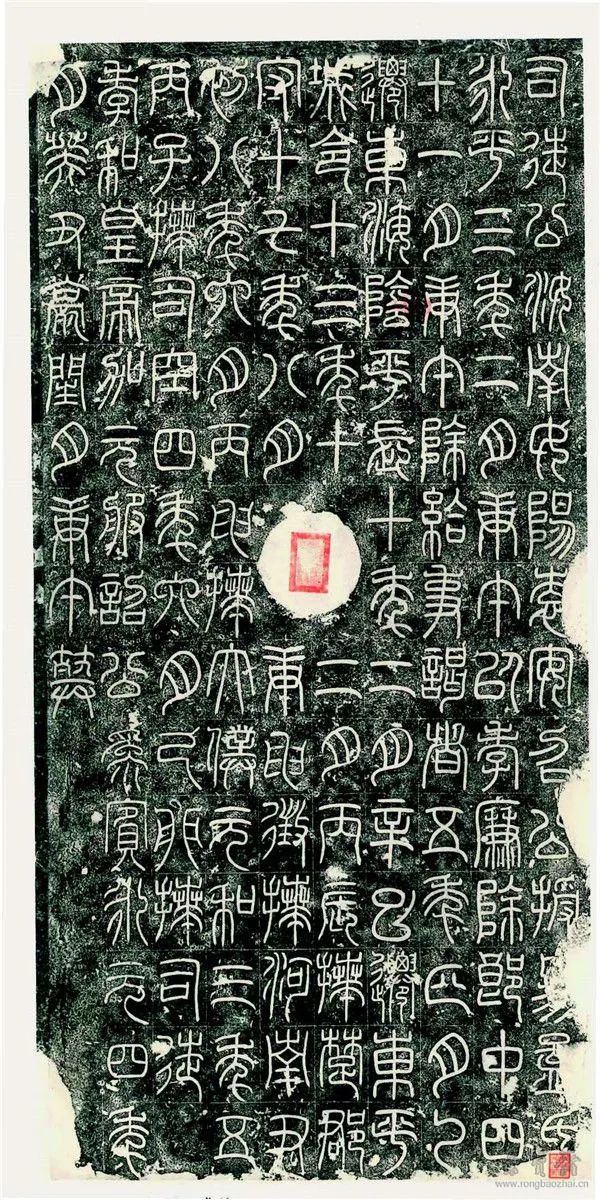 司徒公汝南女陽袁安召公授易孟氏
永平三年二月庚午以孝廉除郎中四
十一月庚午除給事謁者五年四月乙
遷東海陰平長十年二月辛巳遷東平
城令十三年十二月丙辰拜楚郡
守十七年八月庚申徵拜河南尹
初八年六月丙申拜太僕元和三年五
丙子拜司空四年六月己卯拜司徒
孝和皇帝加元服詔公為賓永元四年
月癸丑薨閏月庚午葬
www.rongbaozhai.cn